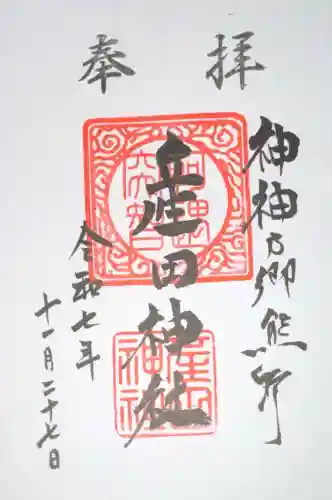 奉拝
神神乃郷熊野
産田神社
令和七年
十一月二十七日